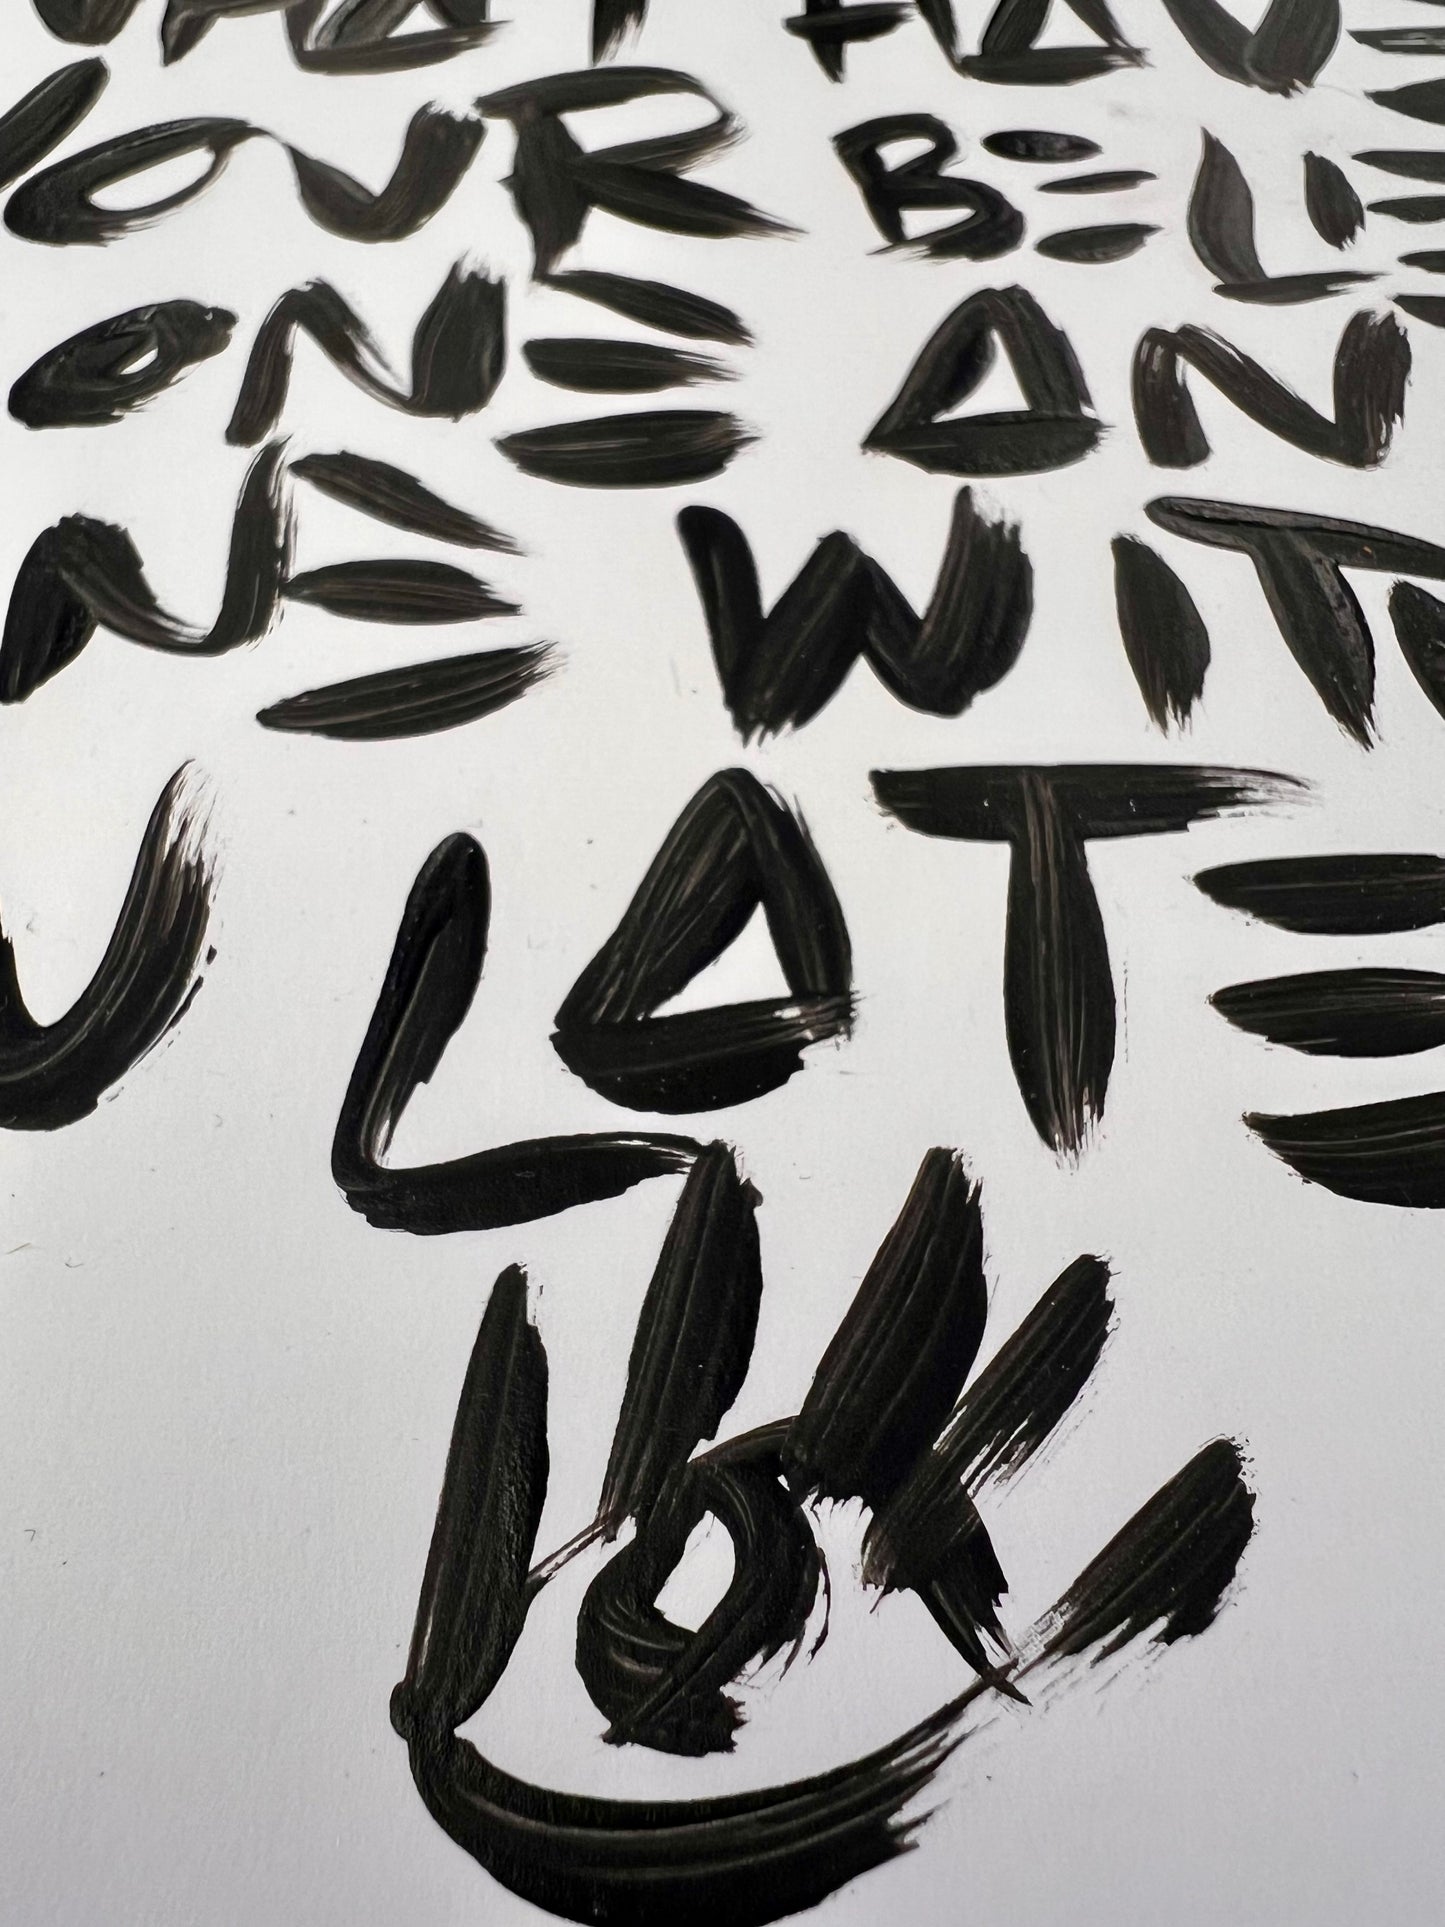 HAT HAVE
YOUR BELIE
ONE AN
NE WIT
U LATE